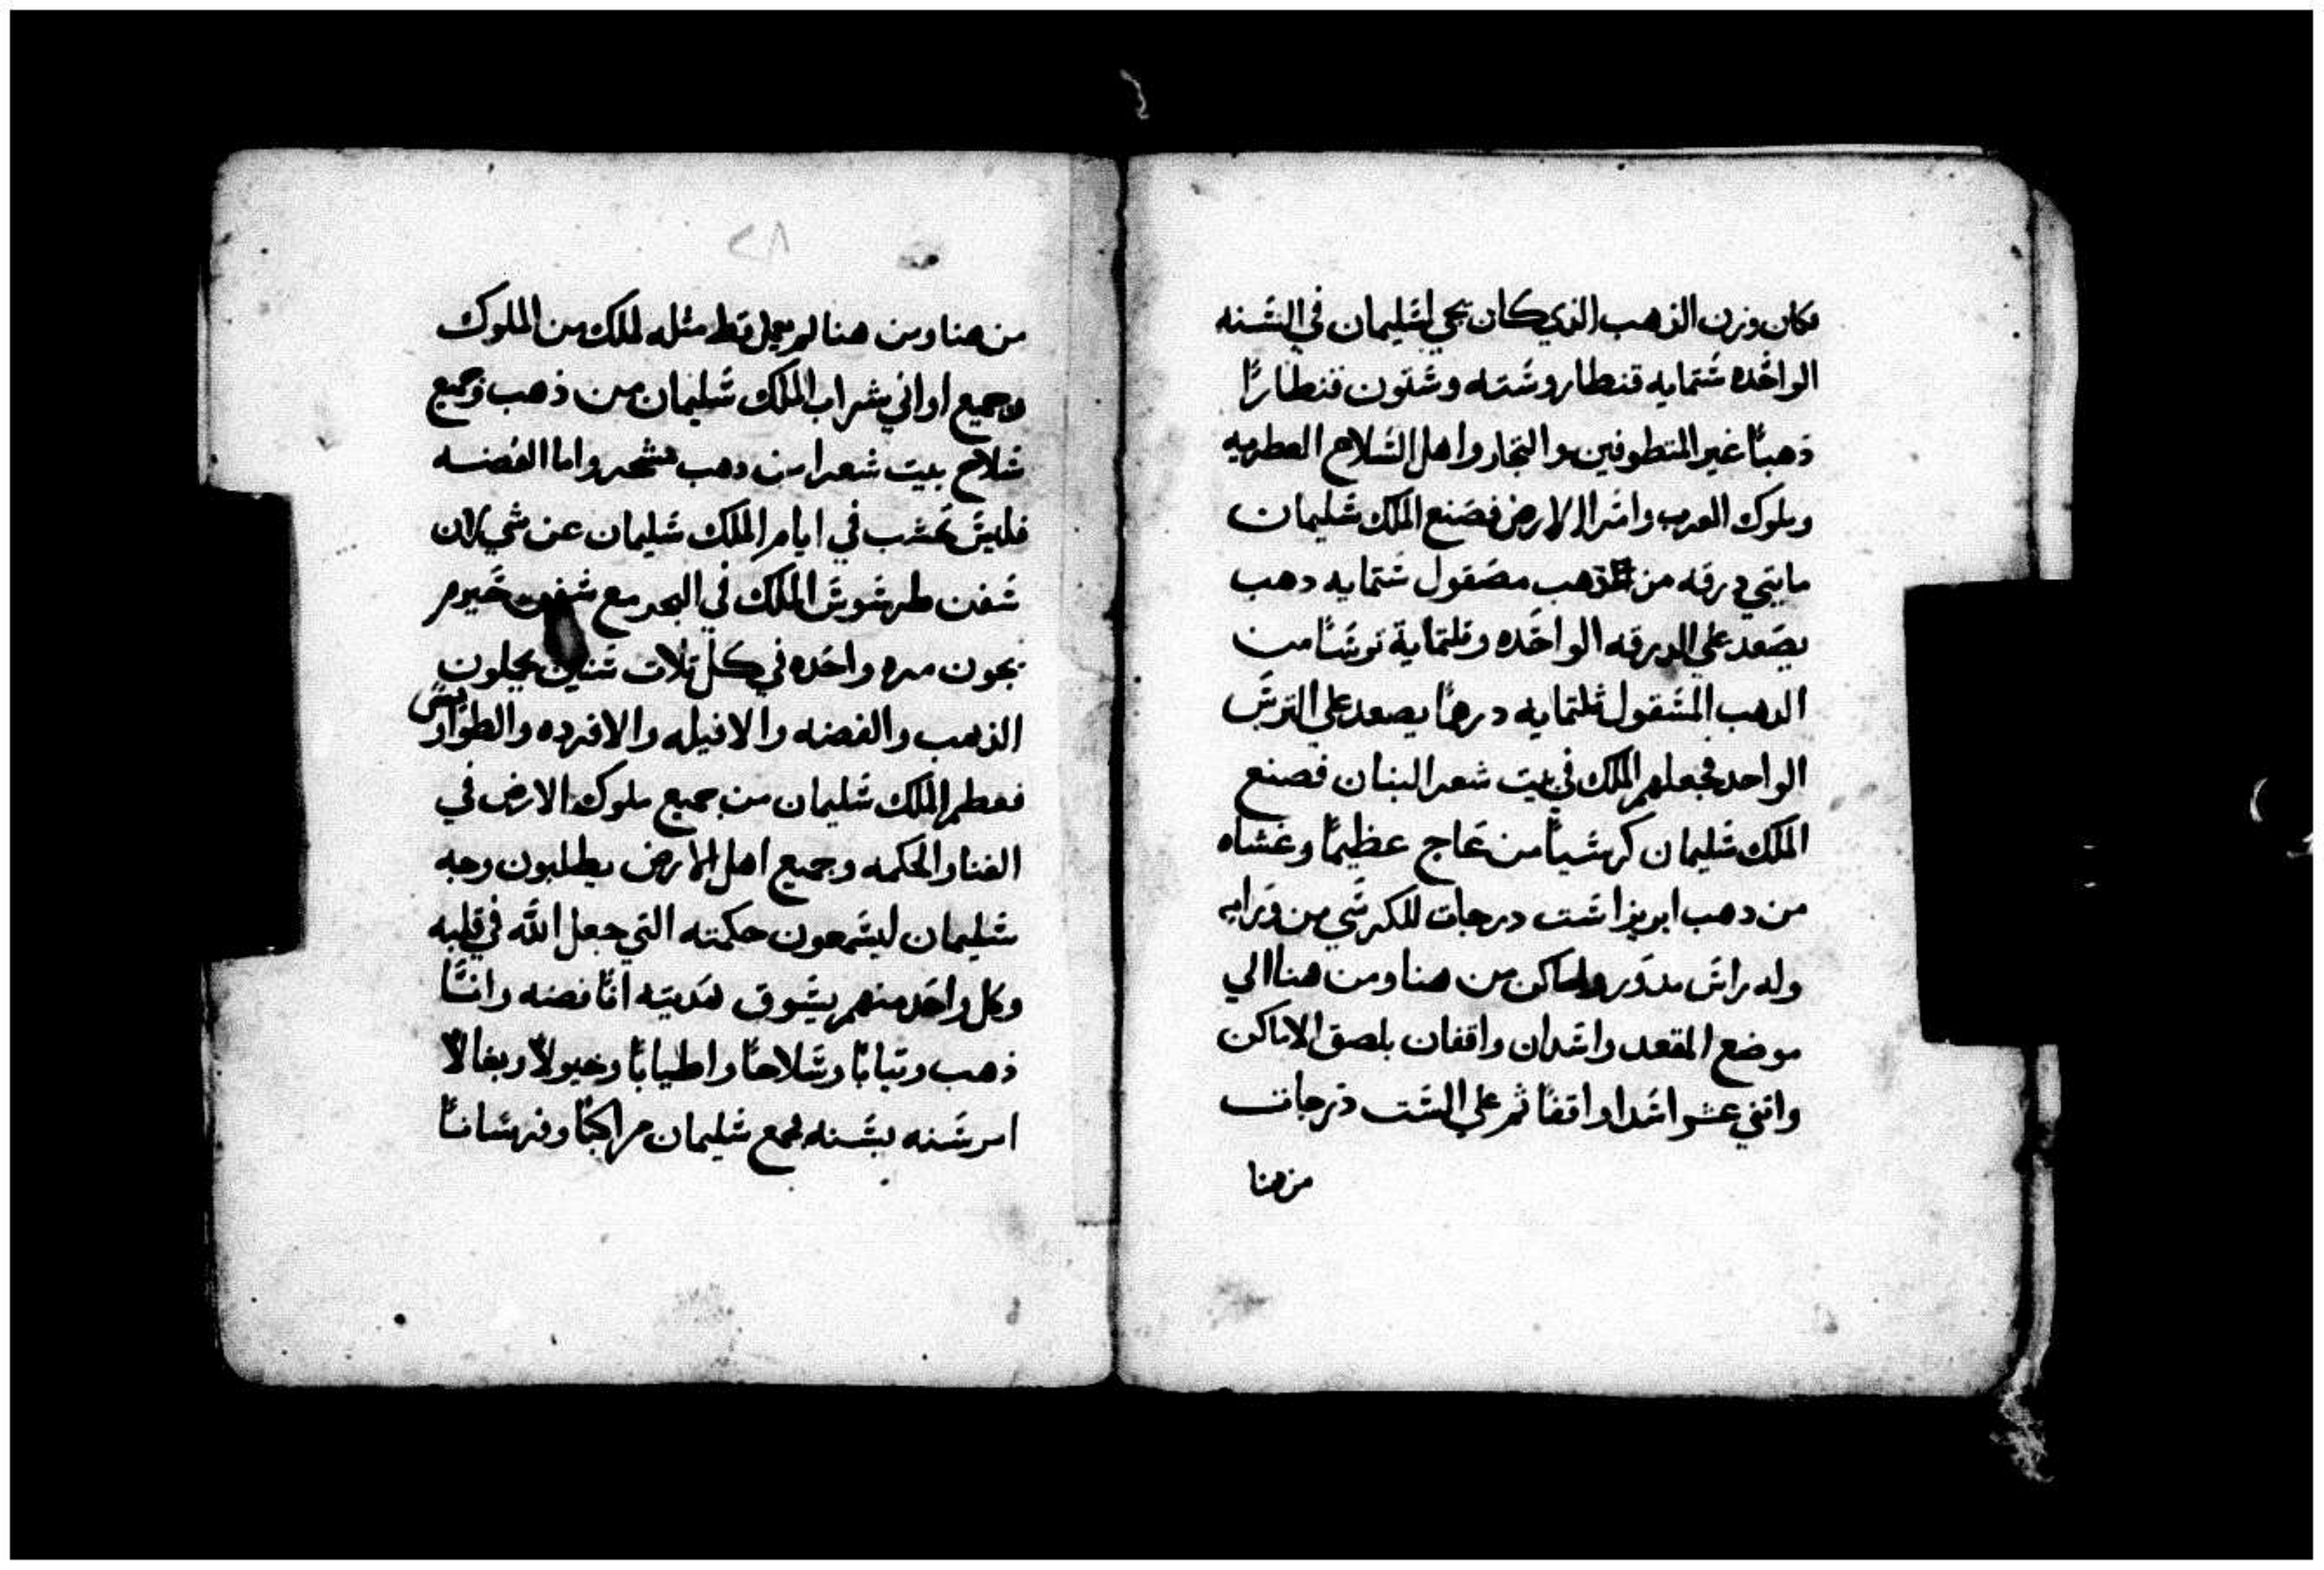 فكان وزن الذهب الذي كان يجي لشليمان في الشنه
الواحده شتمايه قنطار وشته وشتون قنطارًا
ذهبًا غير المتطوفين والتجار واهل الشلاح العطريه
وملوك العرب واشراف الارض فصنع الملك شليمان
مايتي درقه من ذهب مصقول شتمايه دهب
يصعد علي الدرقه الواحده وتلتماية ترشًا من
الدهب المشقول ثلتمايه درهمًا يصعد علي الترش
الواحد فجعلهم الملك في بيت شعرا لبنان فصنع
الملك شليمان كرشيًا من عاج عظيمًا وغشاه
من دهب ابريز اشت درجات للكرشي من ورايه
وله راش مدور واماكن من هنا ومن هنا الي
موضع المقعد واشدان واقفان بلصق الاماكن
واتني عشر اشدا واقفًا ثم علي الشت درجات
من هنا
٢٨
من هنا ومن هنا لم يعمل قط مثله لملك من الملوك
وجميع اواني شراب الملك شليمان من ذهب وجميع
شلاح بيت شعرا من دهب مشجر واما الفضه
فليش تحشب في ايام الملك شليمان عن شي لان
شفن طرشوش الملك في البحر مع شفن حيرم
يجون مره واحده في كل تلات شنين يحملون
الذهب والفضه والافيله والاقرده والطواويش
فعظم الملك شليمان من جميع ملوك الارض في
الغنا والحكمه وجميع اهل الارض يطلبون وجه
شليمان ليشمعون حكمته التي جعل الله في قلبه
وكل واحد منهم يشوق هديته انًا فضه وانشًا
ذهب وتيابًا وشلاحًا واطيابًا وخيولاً وبغالاً
امر شنه بشنه فجمع شليمان مراكبًا وفرشانًا